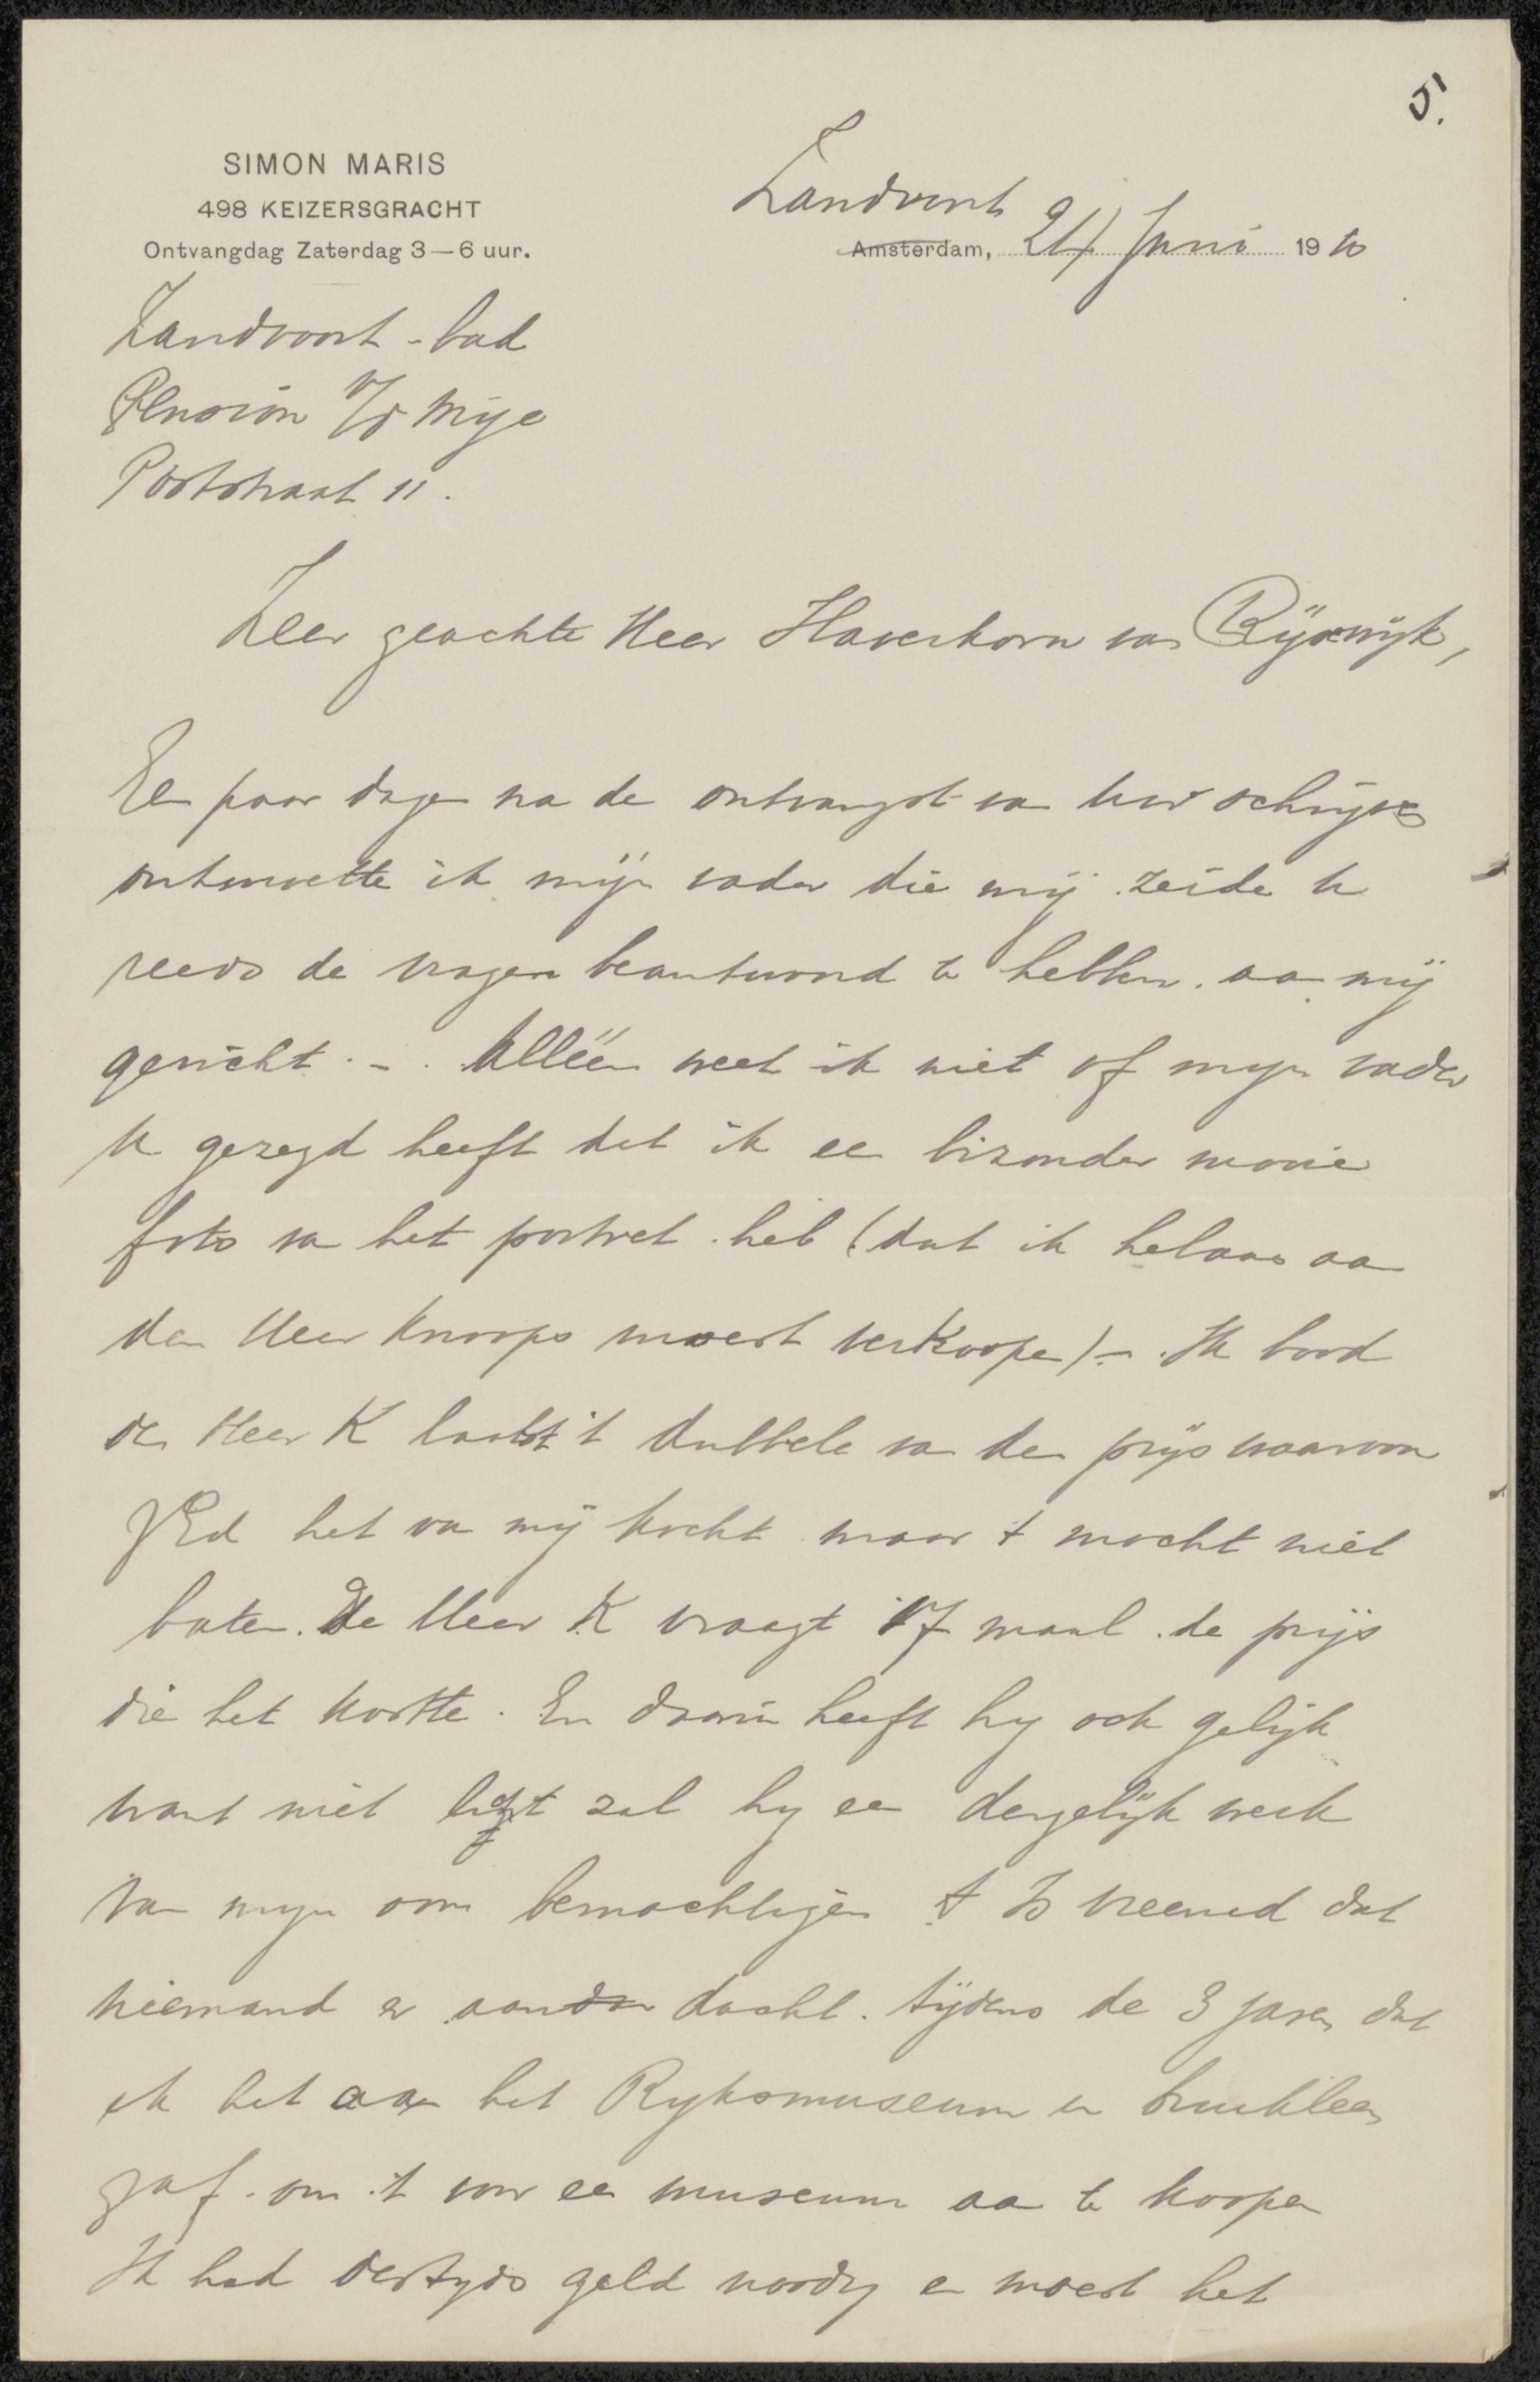 5.
SIMON MARIS
498 KEIZERSGRACHT
Ontvangdag Zaterdag 3—6 uur.
Zandvoort
Amsterdam, 24 Juni 1910
Zandvoort-bad
Pension v/d Mije
Poststraat 11.
Zeer geachte Heer Haverkorn van Rijswijk,
Een paar dagen na de ontvangst van Uw schrijven
ontmoette ik mijn vader die mij zeide U
reeds de vragen beantwoord te hebben. aan mij
gericht. -. Alléén weet ik niet of mijn vader
U gezegd heeft dat ik een bizonder mooie
foto van het portret heb (dat ik helaas aan
den Heer Knoops moest verkoopen) -. Ik bood
den Heer K laatst 't dubbele van den prijs waarvoor
ZEd het van mij kocht maar 't mocht niet
baten. De Heer K vraagt 7 maal de prijs
die het kostte. En daarin heeft hij ook gelijk
want niet ligt zal hij een dergelijk werk
van mijn oom bemachtigen 't Is vreemd dat
niemand er aan dacht. tijdens de 3 jaren dat
ik het aan het Ryksmuseum in bruikleen
gaf. om 't voor een museum aan te koopen
Ik had destyds geld noodig en moest het